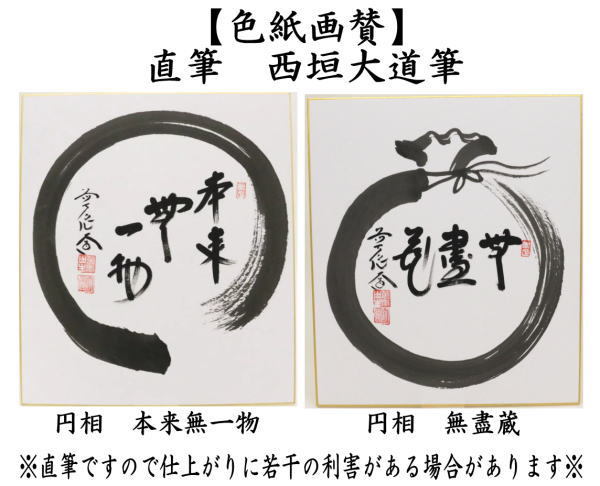 【色紙画賛】
直筆　西垣大道筆
本来
無
一物
無
盡
蔵
円相　本来無一物
円相　無盡蔵
※直筆ですので仕上がりに若干の利害がある場合があります※